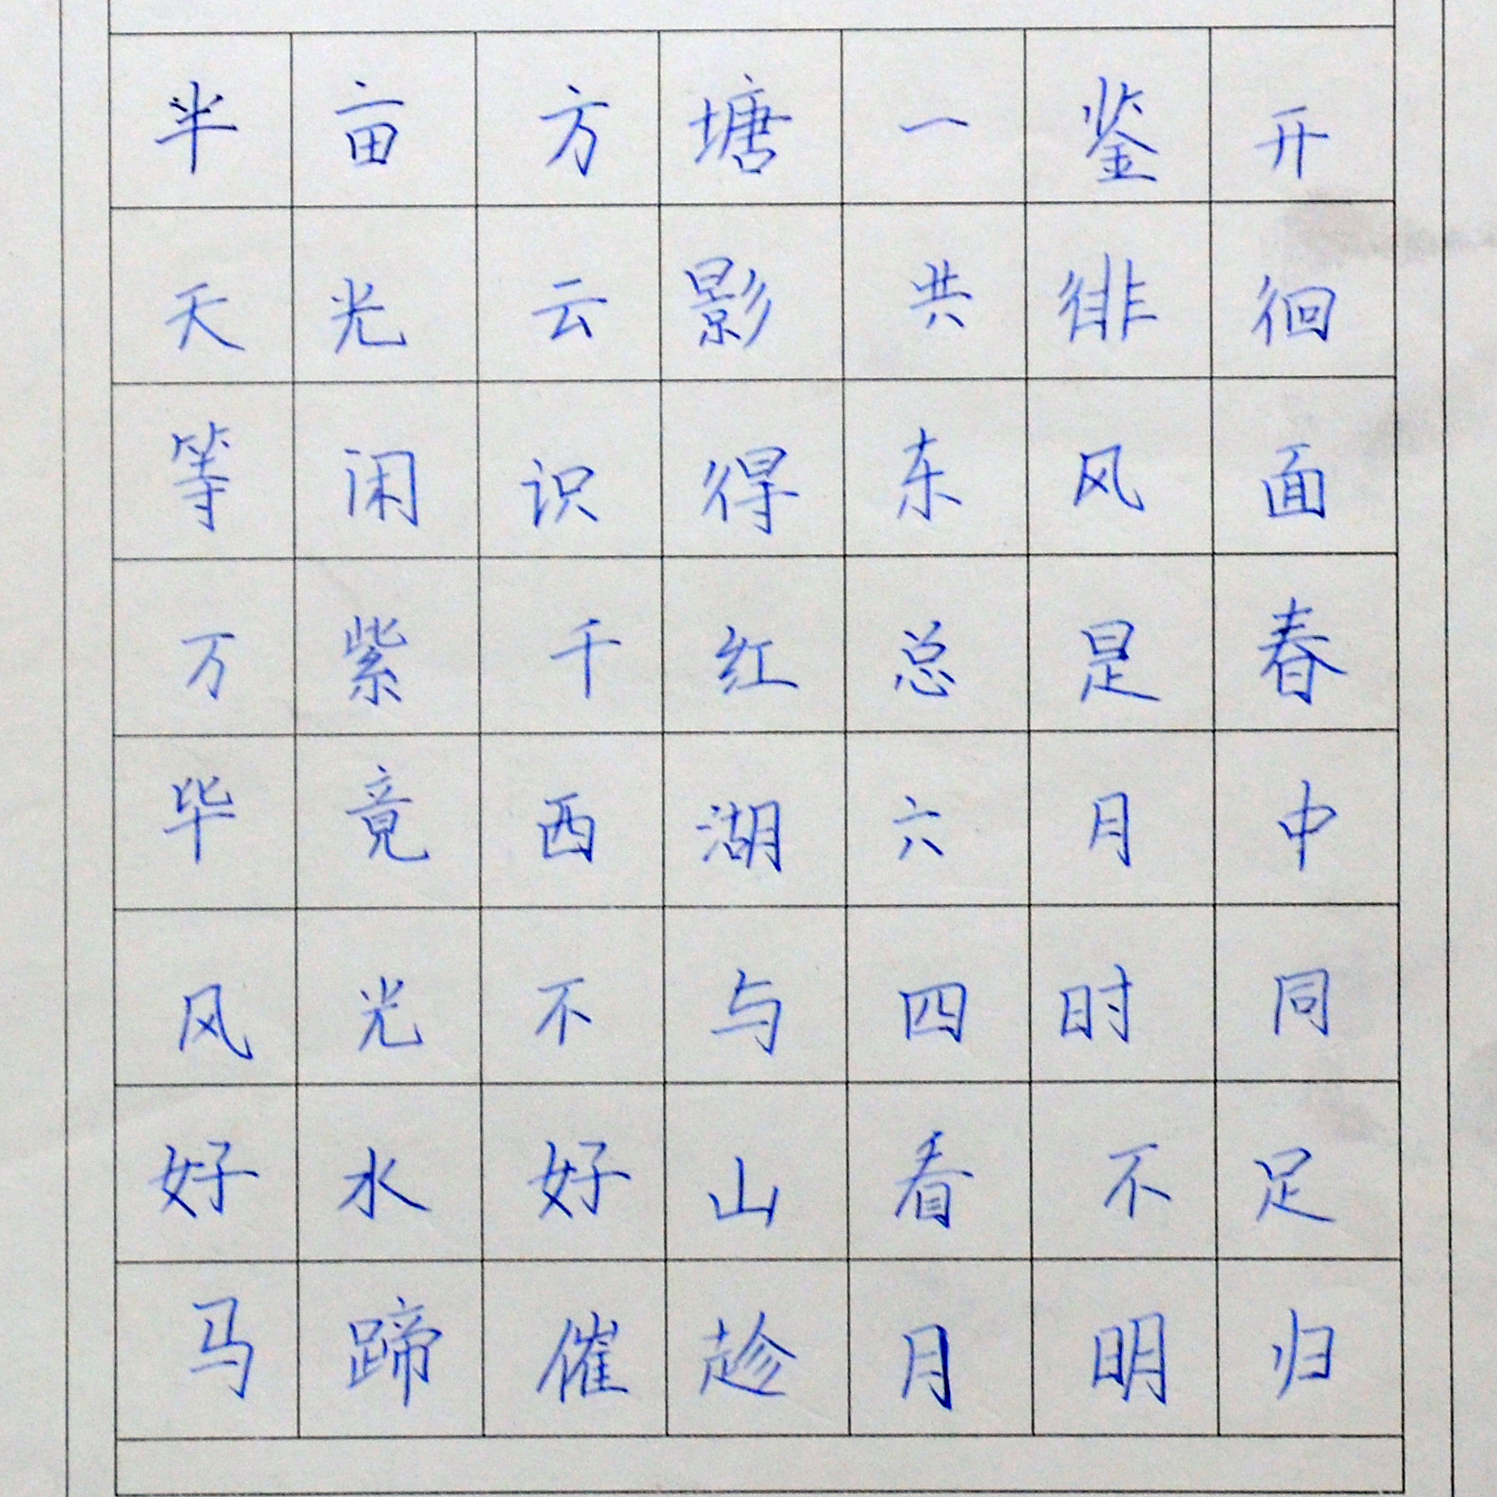 半亩方塘一鉴开
天光云影共徘徊
等闲识得东风面
万紫千红总是春
毕竟西湖六月中
风光不与四时同
好水好山看不足
马蹄催趁月明归